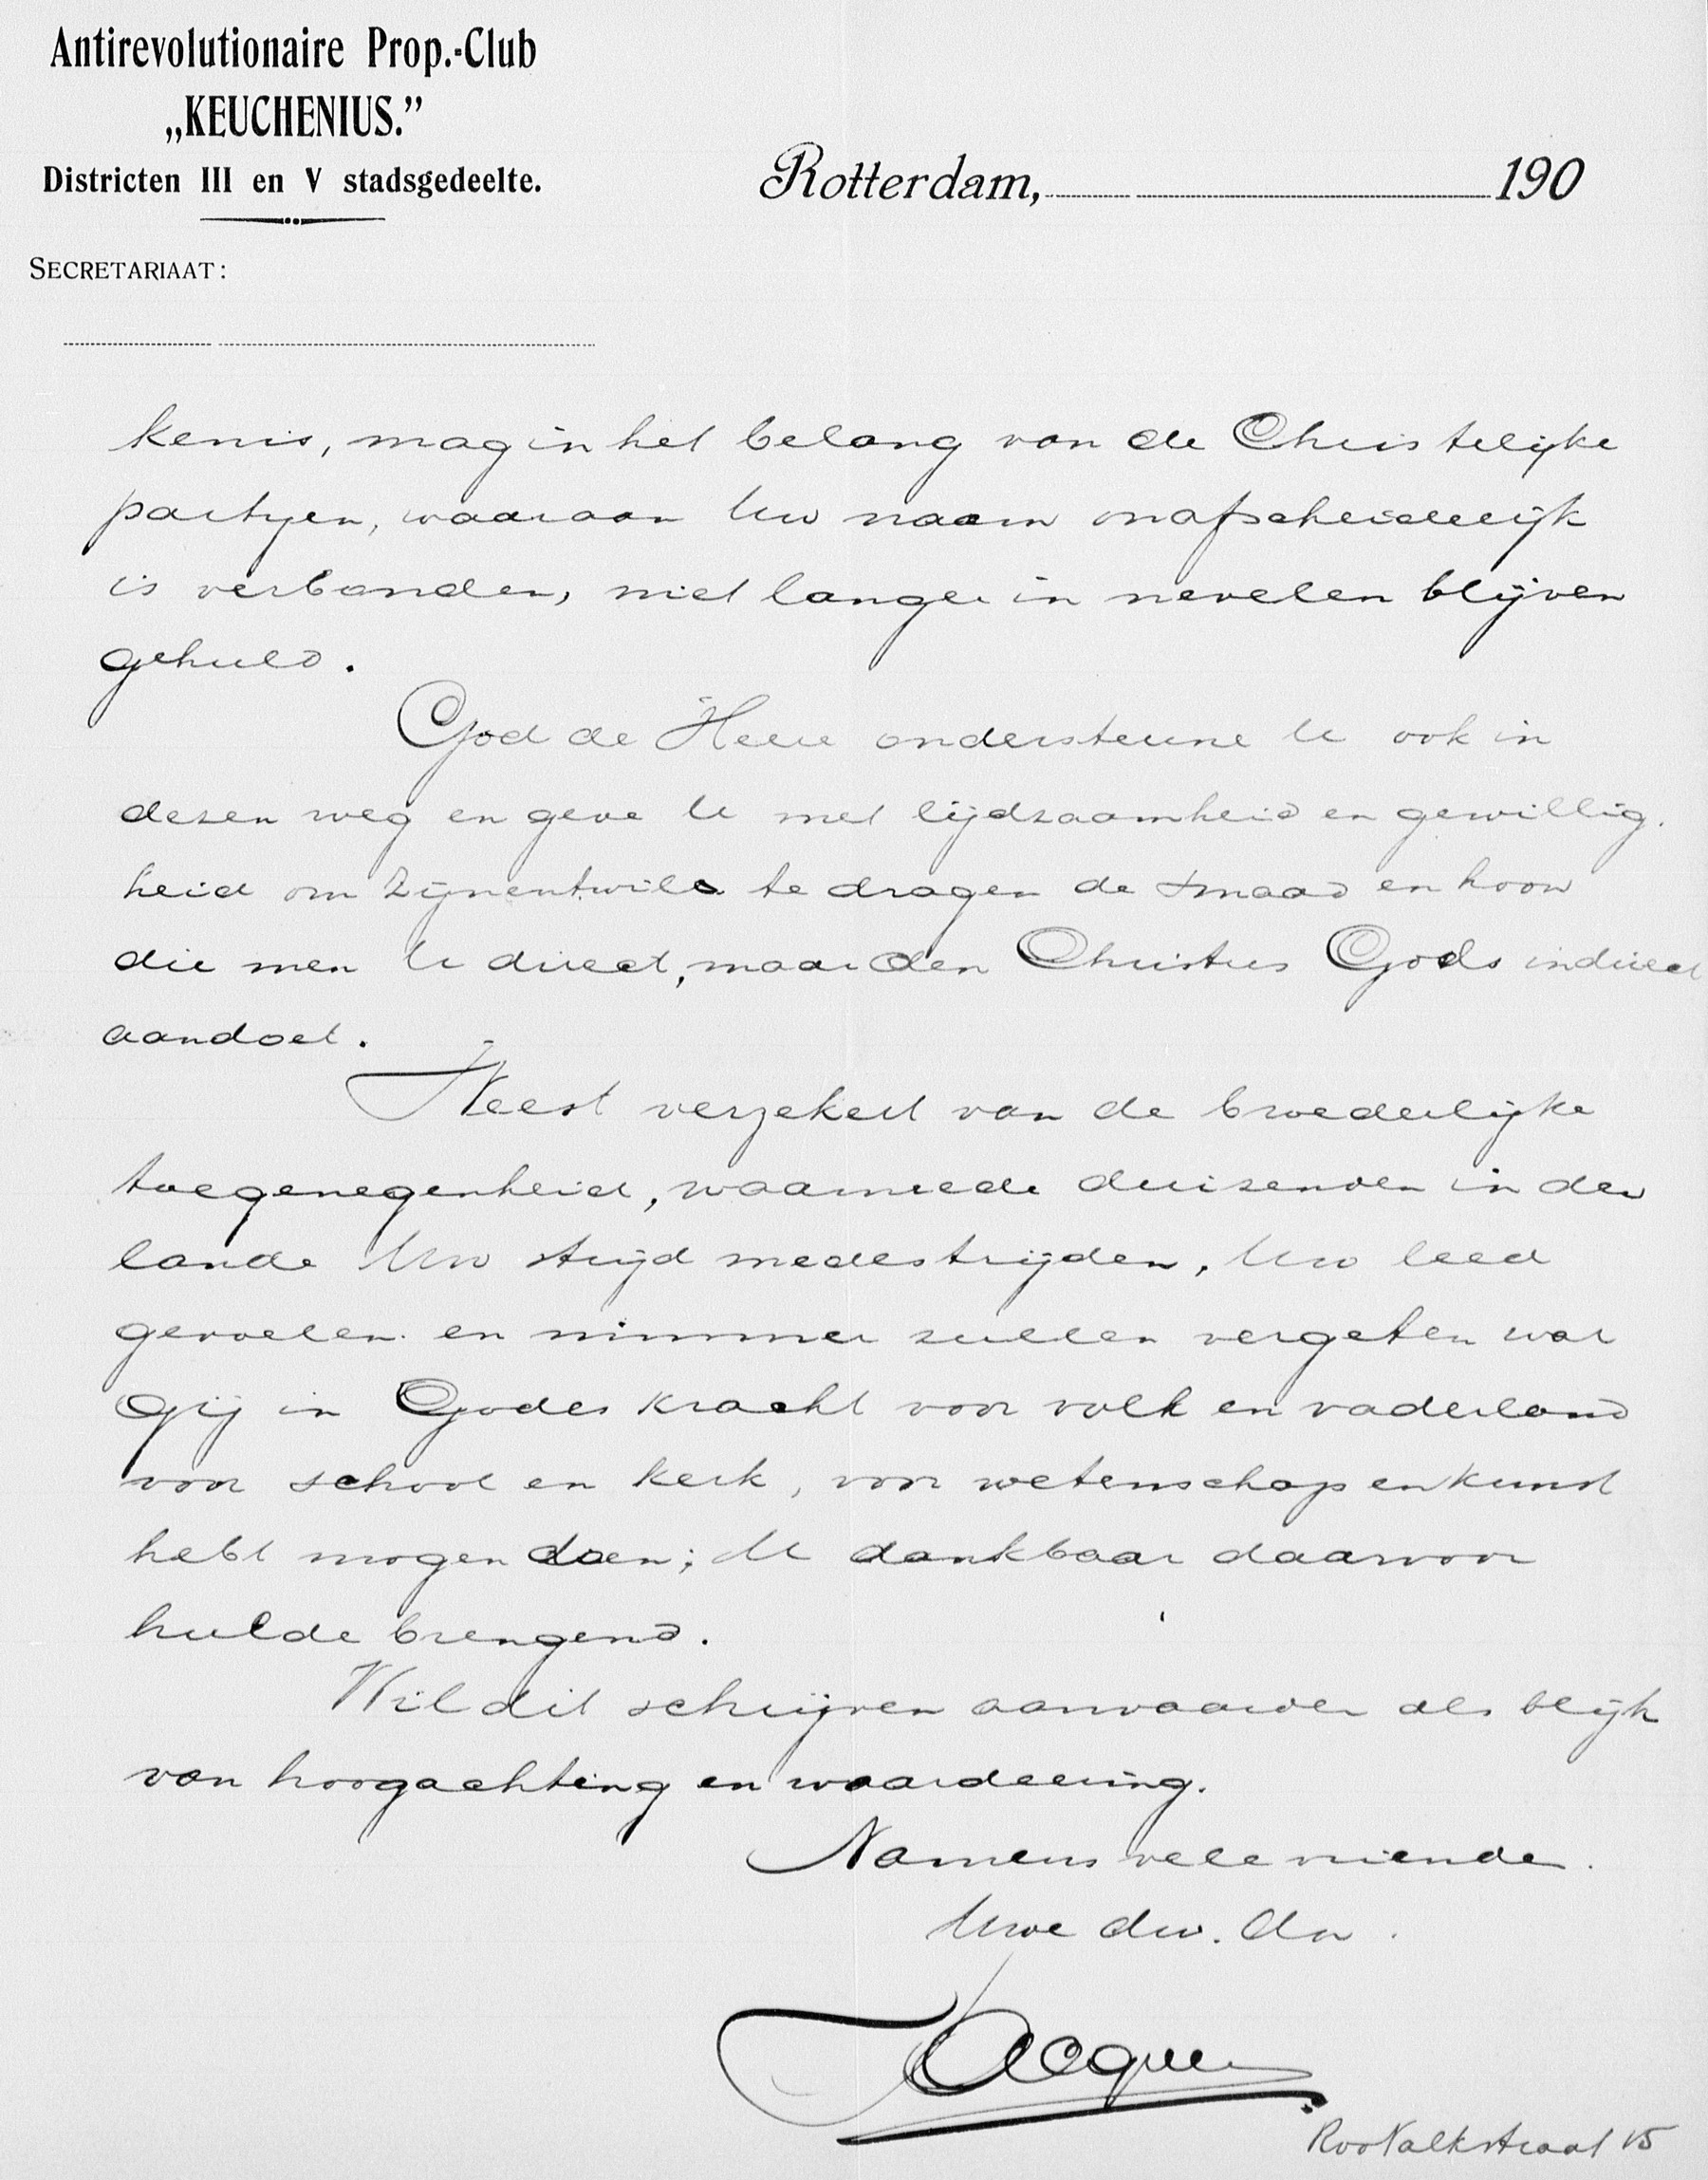 Antirevolutionaire Prop.-Club
„KEUCHENIUS.”
Districten III en V stadsgedeelte.
Rotterdam, 190
SECRETARIAAT:
kenis, mag in het belang van de Christelijke
partijen, waaraan Uw naam onafscheidelijk
is verbonden, niet langer in nevelen blijven
gehuld.
God de Heere ondersteune U ook in
dezen weg en geve U met lijdzaamheid en gewillig-
heid om Zijnentwille te dragen de smaad en hoon
die men U direct, maar den Christus Gods indirect
aandoet.
Weest verzekerd van de broederlijke
toegenegenheid, waarmede duizenden in den
lande Uw strijd medestrijden, Uw leed
gevoelen en nimmer zullen vergeten wat
Gij in Godes kracht voor volk en vaderland
voor school en kerk, voor wetenschap en kunst
hebt mogen doen; U dankbaar daarvoor
hulde brengend.
Wil dit schrijven aanvaarden als blijk
van hoogachting en waardeering.
Namens vele vrienden.
Uwe dw. dn.
Roo Valkstraat 15